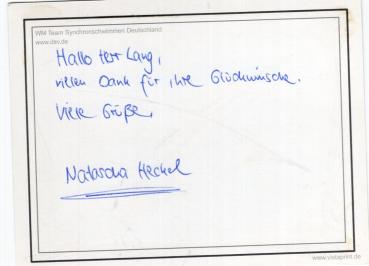 WM Team Synchronschwimmen Deutschland
www.dsv.de
Hallo Herr Lang,
vielen Dank für ihre Glückwünsche.
Viele Grüße,
Natascha Heckel
www.vistaprint.de